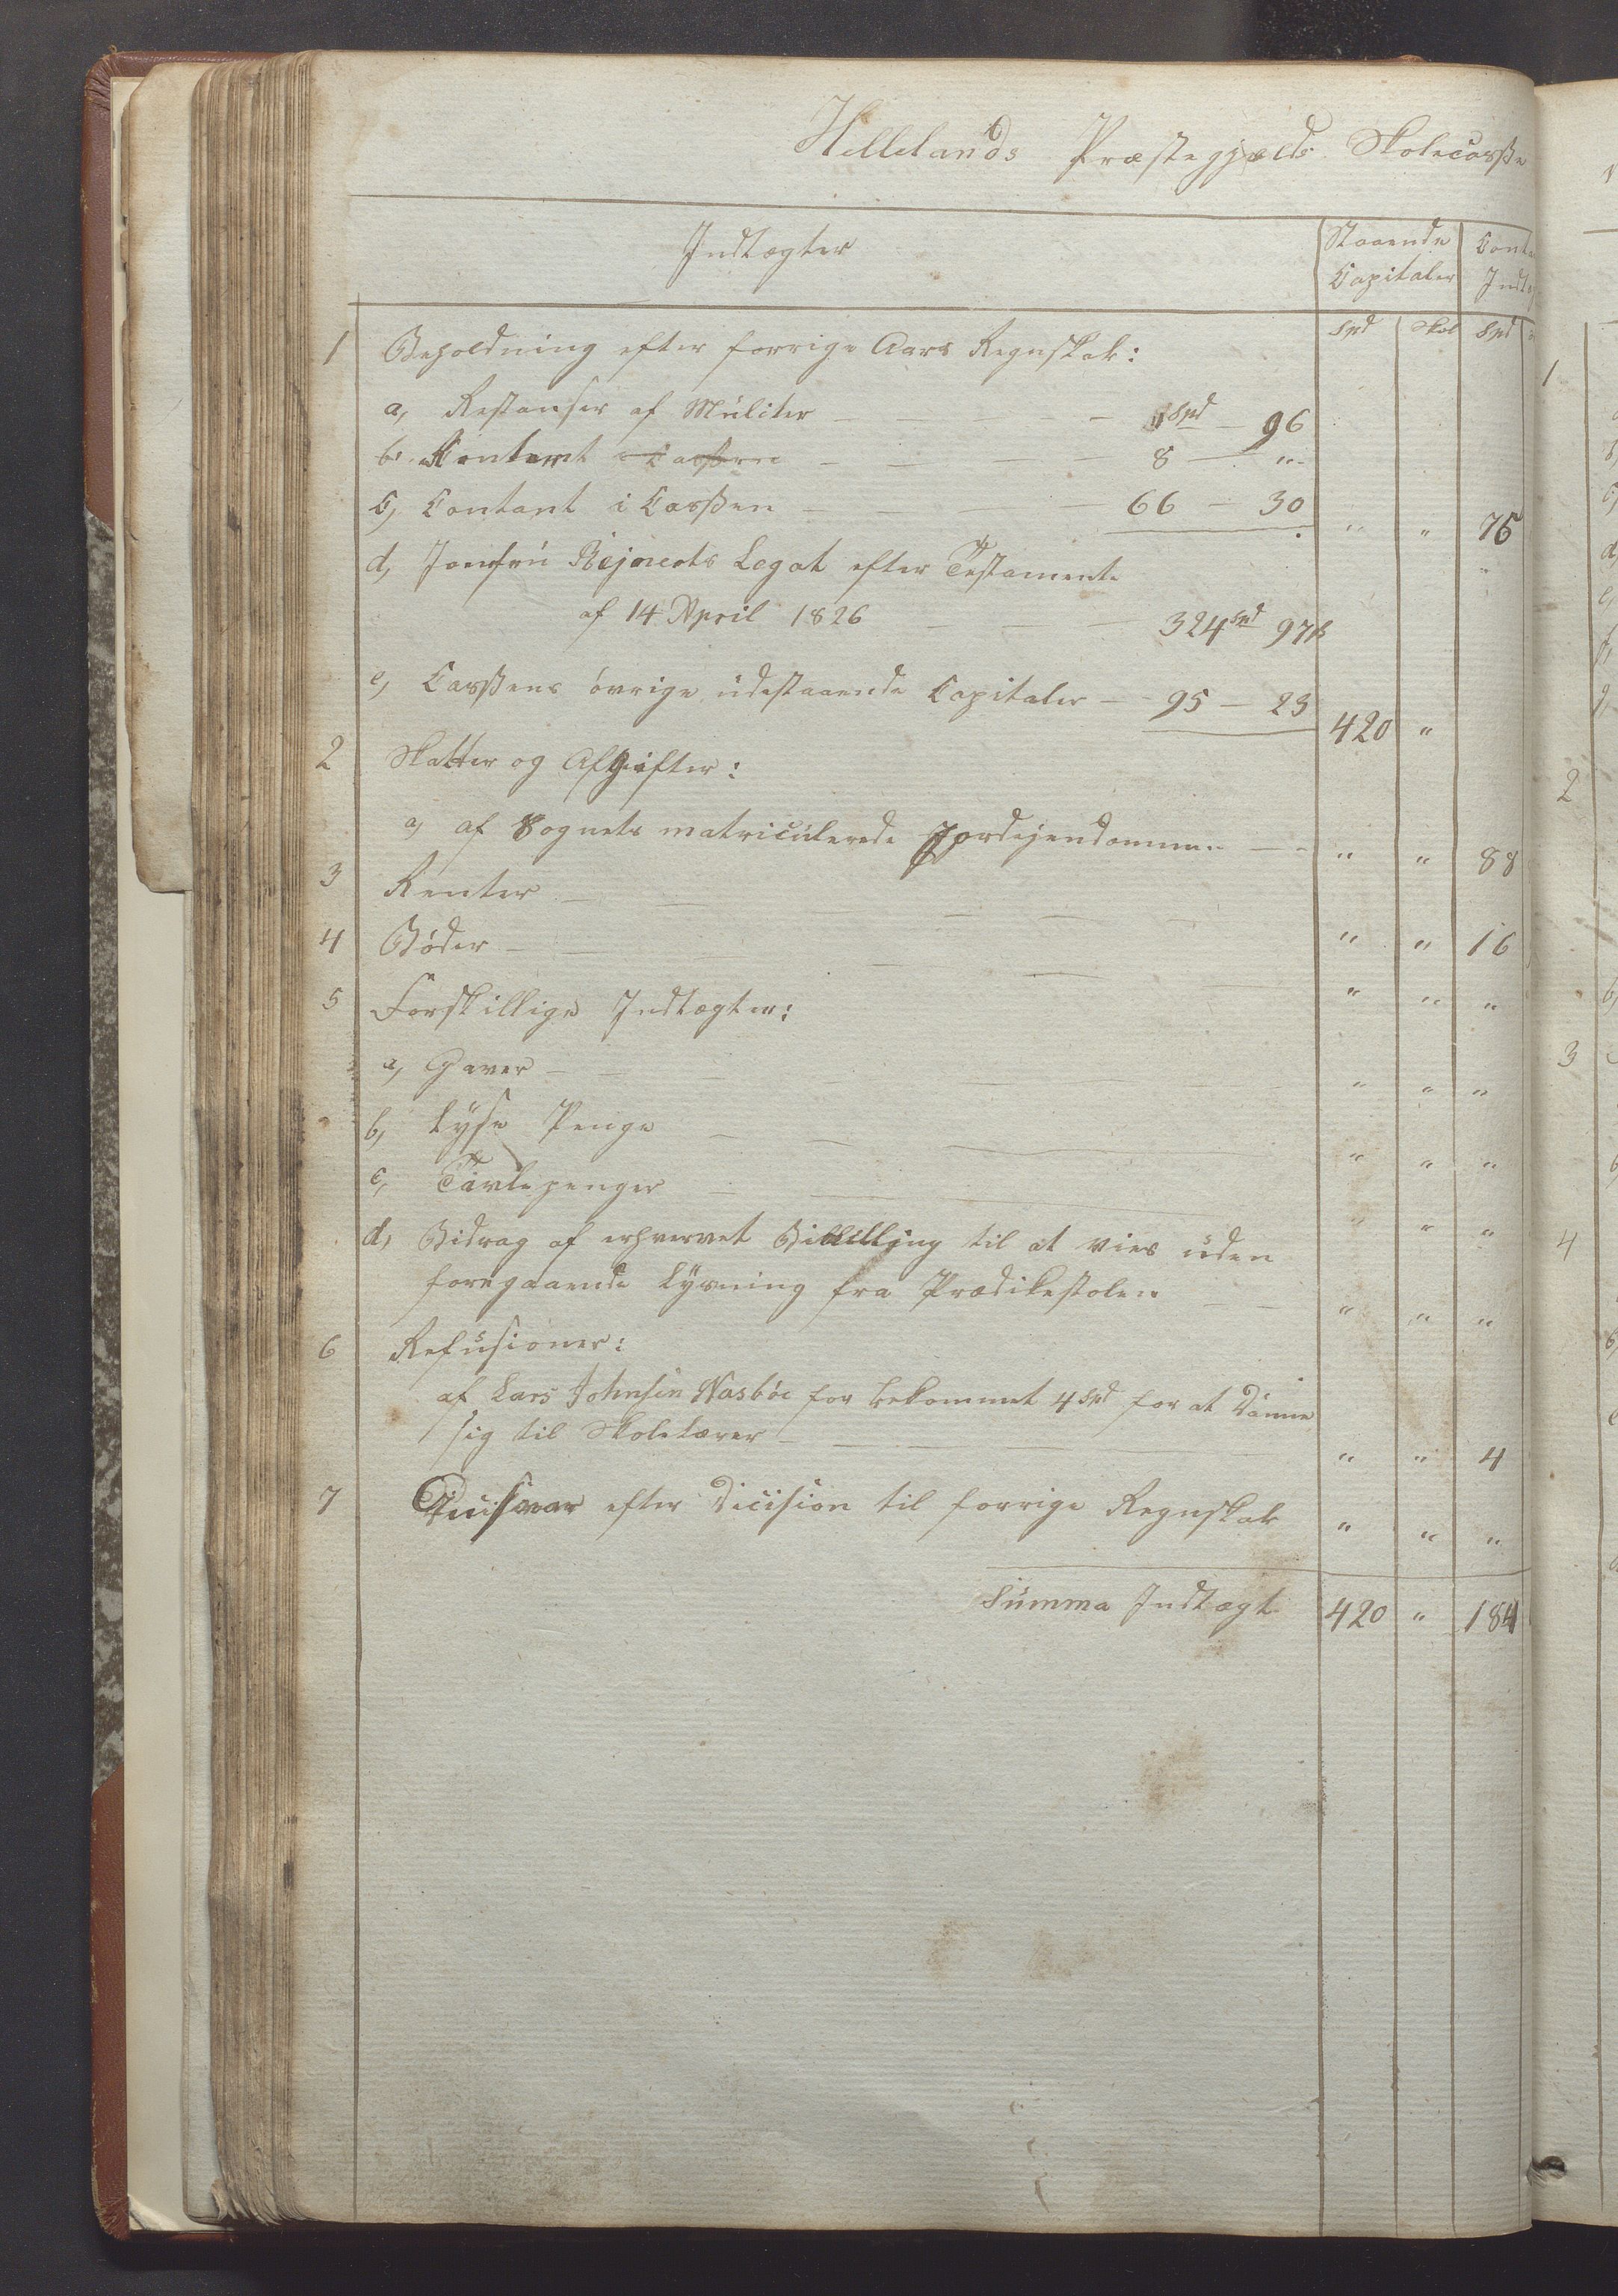 Hellelands Præstegjælds Skolecasse
Indtægter
Staaende
Capitaler
Spd Skil Spd
1 Beholdning efter forrige Aars Regnskab:
a, Restanser af Mulcter — — — 1 Spd — 96
b, — — — 8 — "
c, Contant i Cassen — — 66 — 30 " " 75
d, Jomfru Legat efter Testamente
af 14 April 1826 — — — 324 Spd 97 ß
e, Cassens øvrige udestaaende Capitaler — 95 — 23 420 "
2 Skatter og Afgifter:
a, af Sognets matriculerede Jordejendomme — " " 88
3 Renter — — — — — — " " 16
4 Bøder — — — — — — " " "
5 Forskillige Indtægter:
a, Gaver — — — — — — " " "
b, Lyse Penge — — — — " " "
c, Tavlepenger — — — — " " "
d, Bidrag af erhvervet Bevilling til at vies uden
foregaaende Lysning fra Prædikestolen — — " " "
6 Refusioner:
af Lars Johnsen Nasbøe for bekommet 4 Spd for at danne
sig til Skolelærer — — — — " " 4
7 efter Dicision til forrige Regnskab " " "
Summa Indtægt 420 " 184